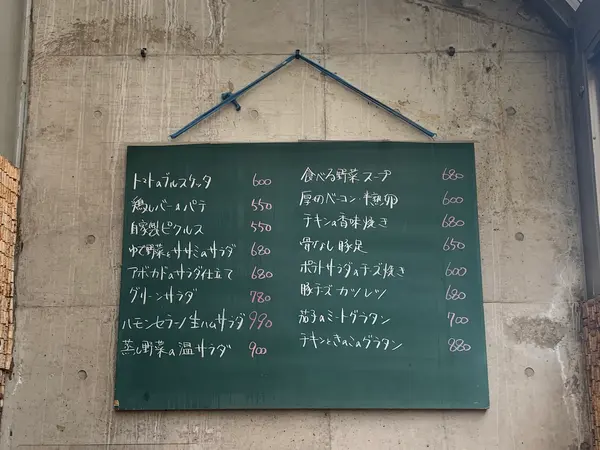 トマトのブルスケッタ 600
鶏レバーのパテ 550
自家製ピクルス 550
ゆで野菜とササミのサラダ 680
アボカドのサラダ仕立て 680
グリーンサラダ 780
ハモンセラーノ生ハムサラダ 990
蒸し野菜の温サラダ 900
食べる野菜スープ 680
厚切ベーコン・燻卵 600
チキンの香味焼き 680
骨なし豚足 650
ポテトサラダのチーズ焼き 600
豚チーズカツレツ 680
茄子のミートグラタン 700
チキンときのこのグラタン 880